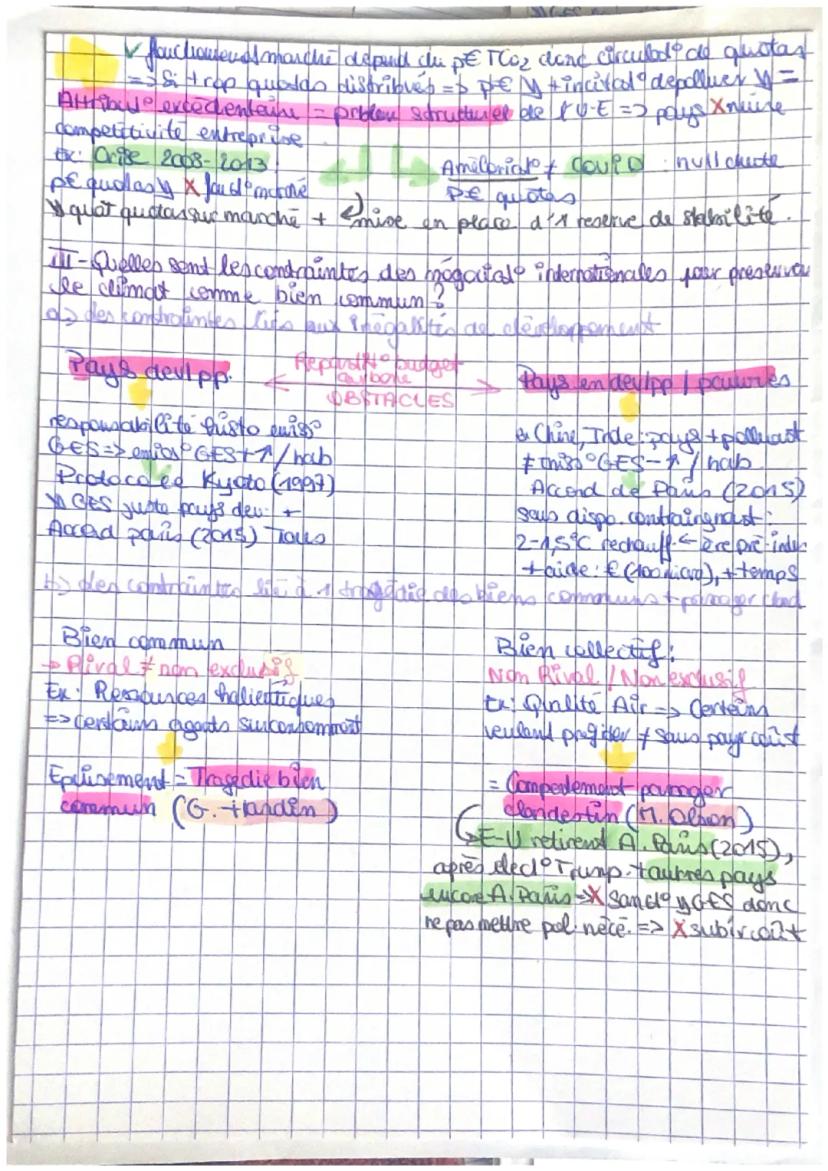 ✓ fonctionnemt marché dépend du p€ TCO2 donc circulat° de quotas
=> Si trop quotas distribués => p€ ↘ + incitat° dépolluer ↘ =
Attribut° excédentaire = problm structurel de l'U-E => pays X nuire
compétitivité entreprise
Ex: Crise 2008-2013
p€ quotas ↘ X fonct° marché
Améliorat° ≠ COVID : null chute
p€ quotas
↘ quot quotas sur marché + mise en place d'1 reserve de stabilité.
III - Quelles sont les contraintes des négociat° internationales pour préserver
le climat comme bien commun ?
a) des contraintes liés aux inégalités de développement
Pays devlpp.
Repartit° budget
carbone
OBSTACLES
Pays en devlpp / pauvres
responsabilité histo émiss°
GES => emiss° GES + ↑ / hab
Protocole Kyoto (1997)
↘ GES juste pays dev: ≠
Accord paris (2015) Tous
ex Chine, Inde : pays + polluant
≠ émiss° GES - ↑ / hab
Accord de Paris (2015)
sans dispo. contraingnant :
2-1,5°C réchauff. <- ère pré-indus
+ aide : € (100 micro), + temps
b) des contraintes lié à 1 tragédie des biens communs + passager cland
Bien commun
→ Rival ≠ non exclusif
Ex: Ressources halieutiques
=> certains agents surconsomment
Epuisement = Tragédie bien
commun (G. Hardin)
Bien collectif :
Non Rival / Non exclusif
Ex: Qualité Air => Certains
veulent profiter ≠ sans payr coût
= Comportement passager
clandestin (M. Olson)
↳ E-U retirent A. Paris (2015),
après élect° Trump. + autres pays
encore A. Paris → X sanct° ↘ GES donc
ne pas mettre pol. néce. => X subir coût